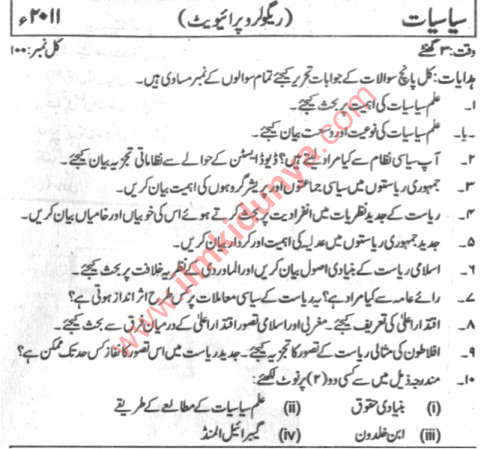 سیاسیات (ریگولر و پرائیویٹ) ۲۰۱۱ء
وقت: ۳ گھنٹے کل نمبر: ۱۰۰
ہدایات: کل پانچ سوالات کے جوابات تحریر کیجئے تمام سوالوں کے نمبر مساوی ہیں۔
۱۔ علم سیاسیات کی اہمیت پر بحث کیجئے۔
۔یا۔ علم سیاسیات کی نوعیت اور وسعت بیان کیجئے۔
۲۔ آپ سیاسی نظام سے کیا مراد لیتے ہیں؟ ڈیوڈ ایسٹن کے حوالے سے نظاماتی تجزیہ بیان کیجئے۔
۳۔ جمہوری ریاستوں میں سیاسی جماعتوں اور پریشر گروہوں کی اہمیت بیان کریں۔
۴۔ ریاست کے جدید نظریات میں انفرادیت پر بحث کرتے ہوئے اس کی خوبیاں اور خامیاں بیان کریں۔
۵۔ جدید جمہوری ریاستوں میں عدلیہ کی اہمیت اور کردار بیان کریں۔
۶۔ اسلامی ریاست کے بنیادی اصول بیان کریں اور الماوردی کے نظریہ خلافت پر بحث کیجئے۔
۷۔ رائے عامہ سے کیا مراد ہے؟ یہ ریاست کے سیاسی معاملات پر کس طرح اثر انداز ہوتی ہے؟
۸۔ اقتدار اعلیٰ کی تعریف کیجئے۔ مغربی اور اسلامی تصور اقتدار اعلیٰ کے درمیان فرق سے بحث کیجئے۔
۹۔ افلاطون کی مثالی ریاست کے تصور کا تجزیہ کیجئے۔ جدید ریاست میں اس تصور کا نفاذ کس حد تک ممکن ہے؟
۱۰۔ مندرجہ ذیل میں سے کسی دو (۲) پر نوٹ لکھئے:
(i) بنیادی حقوق (ii) علم سیاسیات کے مطالعے کے طریقے
(iii) ابن خلدون (iv) گیبرائیل المنڈ
www.ilmkidunya.com